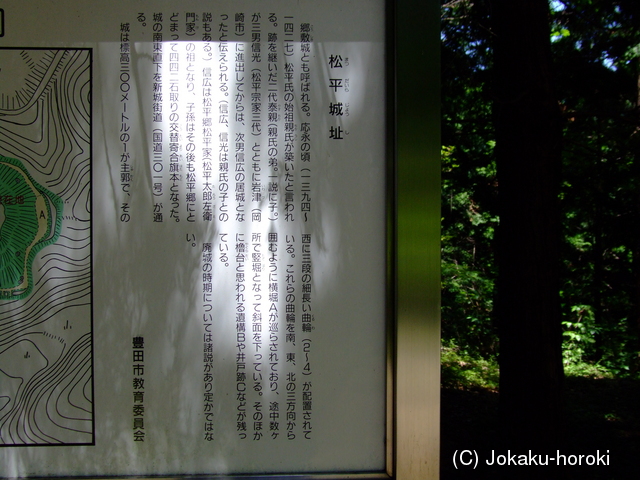 松平城址
郷敷城とも呼ばれる。応永の頃（一三九四～
一四二七）松平氏の始祖親氏が築いたと言われ
る。跡を継いだ二代泰親（親氏の弟。一説に子。）
が三男信光（松平宗家三代）とともに岩津（岡
崎市）に進出してからは、次男信広の居城とな
ったと伝えられる。（信広、信光は親氏の子との
説もある。）信広は松平郷松平家（松平太郎左衛
門家）の祖となり、子孫はその後も松平郷にと
どまって四四二石取りの交替寄合旗本となった。
城の南東直下を新城街道（国道三〇一号）が通
る。
城は標高三〇〇メートルの1が主郭で、その
西に三段の細長い曲輪（2～4）が配置されて
いる。これらの曲輪を南、東、北の三方向から
囲むように横堀Aが巡らされており、途中数ヶ
所で竪堀となって斜面を下っている。そのほか
に櫓台と思われる遺構Bや井戸跡Cなどが残っ
ている。
廃城の時期については諸説があり定かではな
い。
豊田市教育委員会
A
(C) Jokaku-horoki